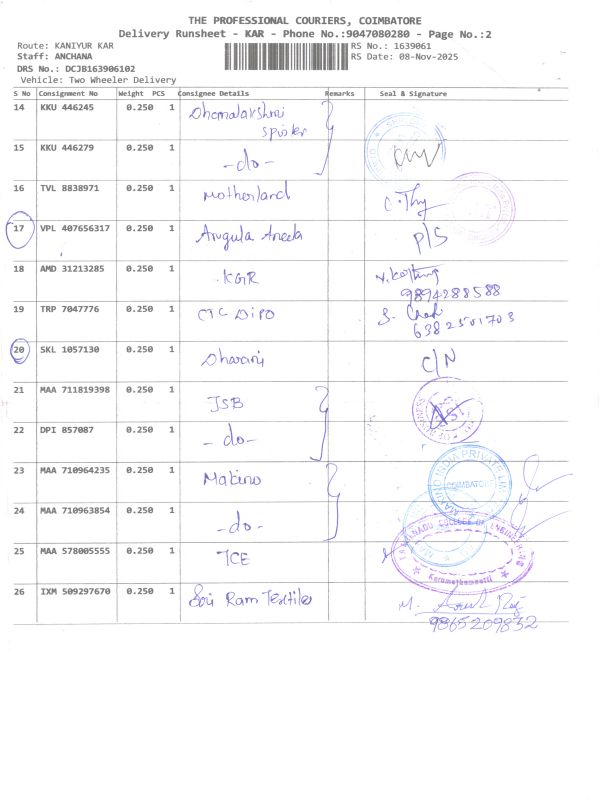 THE PROFESSIONAL COURIERS, COIMBATORE
Delivery Runsheet - KAR - Phone No.:9047080280 - Page No.:2
Route: KANIYUR KAR RS No.: 1639061
Staff: ANCHANA RS Date: 08-Nov-2025
DRS No.: DCJB163906102
Vehicle: Two Wheeler Delivery
S No Consignment No Weight PCS Consignee Details Remarks Seal & Signature
14 KKU 446245 0.250 1 Dhanalakshmi
15 KKU 446279 0.250 1 -do-
16 TVL 8838971 0.250 1 Motherland
17 VPL 407656317 0.250 1 P/S
18 AMD 31213285 0.250 1 KGR
9894288588
19 TRP 7047776 0.250 1 CTC DIPO
6382501703
20 SKL 1057130 0.250 1 Dharani C/N
21 MAA 711819398 0.250 1 JSB
22 DPI 857087 0.250 1 -do-
23 MAA 710964235 0.250 1 Makino MAKINO INDIA PRIVATE LIMITED COIMBATORE
24 MAA 710963854 0.250 1 -do-
25 MAA 578005555 0.250 1 TCE COLLEGE OF ENGINEERING Karumathampatti
26 IXM 509297670 0.250 1 Sri Ram Textile
9865209832